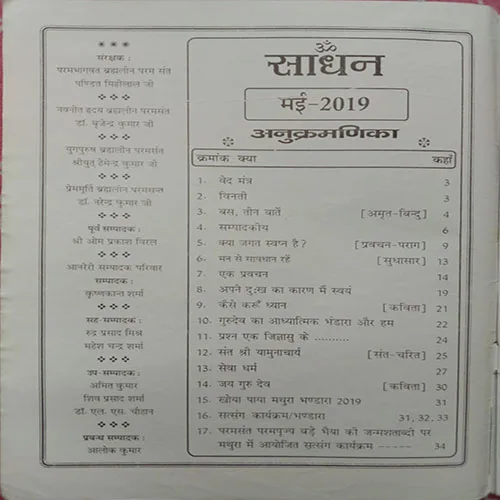 ***
संरक्षक :
परमभागवत ब्रह्मलीन परम संत
पण्डित मिहीलाल जी
❖❖❖
नवनीत हृदय ब्रह्मलीन परमसंत
डॉ. बृजेन्द्र कुमार जी
❖❖❖
युगपुरुष ब्रह्मलीन परमसंत
श्रीयुत् हेमेन्द्र कुमार जी
❖❖❖
प्रेममूर्ति ब्रह्मलीन परमसन्त
डॉ. नरेन्द्र कुमार जी
❖❖❖
पूर्व सम्पादक :
श्री ओम प्रकाश विरल
❖❖❖
आनरेरी सम्पादक परिवार
सम्पादक :
कृष्णकान्त शर्मा
❖❖❖
सह-सम्पादक :
रुद्र प्रसाद मिश्र
महेश चन्द्र शर्मा
❖❖❖
उप-सम्पादक :
अमित कुमार
शिव प्रसाद शर्मा
डॉ. एल. एस. चौहान
❖❖❖
प्रबन्ध सम्पादक :
आलोक कुमार
ॐ
साधन
मई-2019
अनुक्रमणिका
क्रमांक क्या कहाँ
1. वेद मंत्र 3
2. विनती 3
3. बस, तीन बातें [अमृत-बिन्दु] 4
4. सम्पादकीय 6
5. क्या जगत स्वप्न है? [प्रवचन-पराग] 9
6. मन से सावधान रहें [सुधासार] 13
7. एक प्रवचन 14
8. अपने दु:ख का कारण मैं स्वयं 19
9. कैसे करूँ ध्यान [कविता] 21
10. गुरुदेव का आध्यात्मिक भंडारा और हम 22
11. प्रश्न एक जिज्ञासु के .......... 24
12. संत श्री यामुनाचार्य [संत-चरित] 25
13. सेवा धर्म 27
14. जय गुरु देव [कविता] 30
15. खोया पाया मथुरा भण्डारा 2019 31
16. सत्संग कार्यक्रम/भण्डारा 31, 32, 33
17. परमसंत परमपूज्य बड़े भैया की जन्मशताब्दी पर
मथुरा में आयोजित सत्संग कार्यक्रम ----- 34